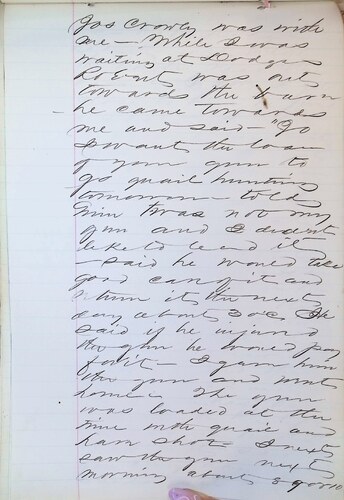 Jos Crowly was with
me – While I was
waiting at Dodges
Robert was out
towards the barn
he came towards
me and said – "Jo
I want the loan
of your gun to
go quail hunting
tomorrow – told
him twas not my
gun and I didn't
like to lend it
– said he would take
good care of it and
return it the next
day about 3 oc He
said if he injured
the gun he would pay
for it – I gave him
the gun and went
home – The gun
was loaded at the
time with quail and
ham shot I next
saw the gun next
morning about